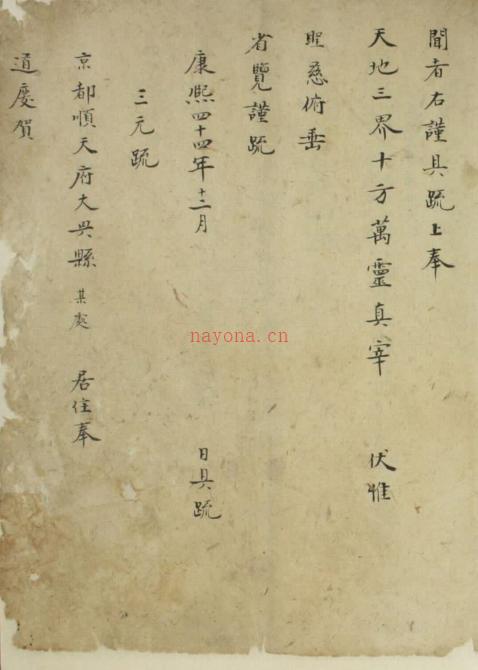 聞者右謹具疏上奉
天地三界十方萬靈真宰 伏惟
聖慈俯垂
省覽謹疏
康熙四十四年十二月 日具疏
三元疏
京都順天府大興縣 某處 居住奉
道慶賀
nayona.cn